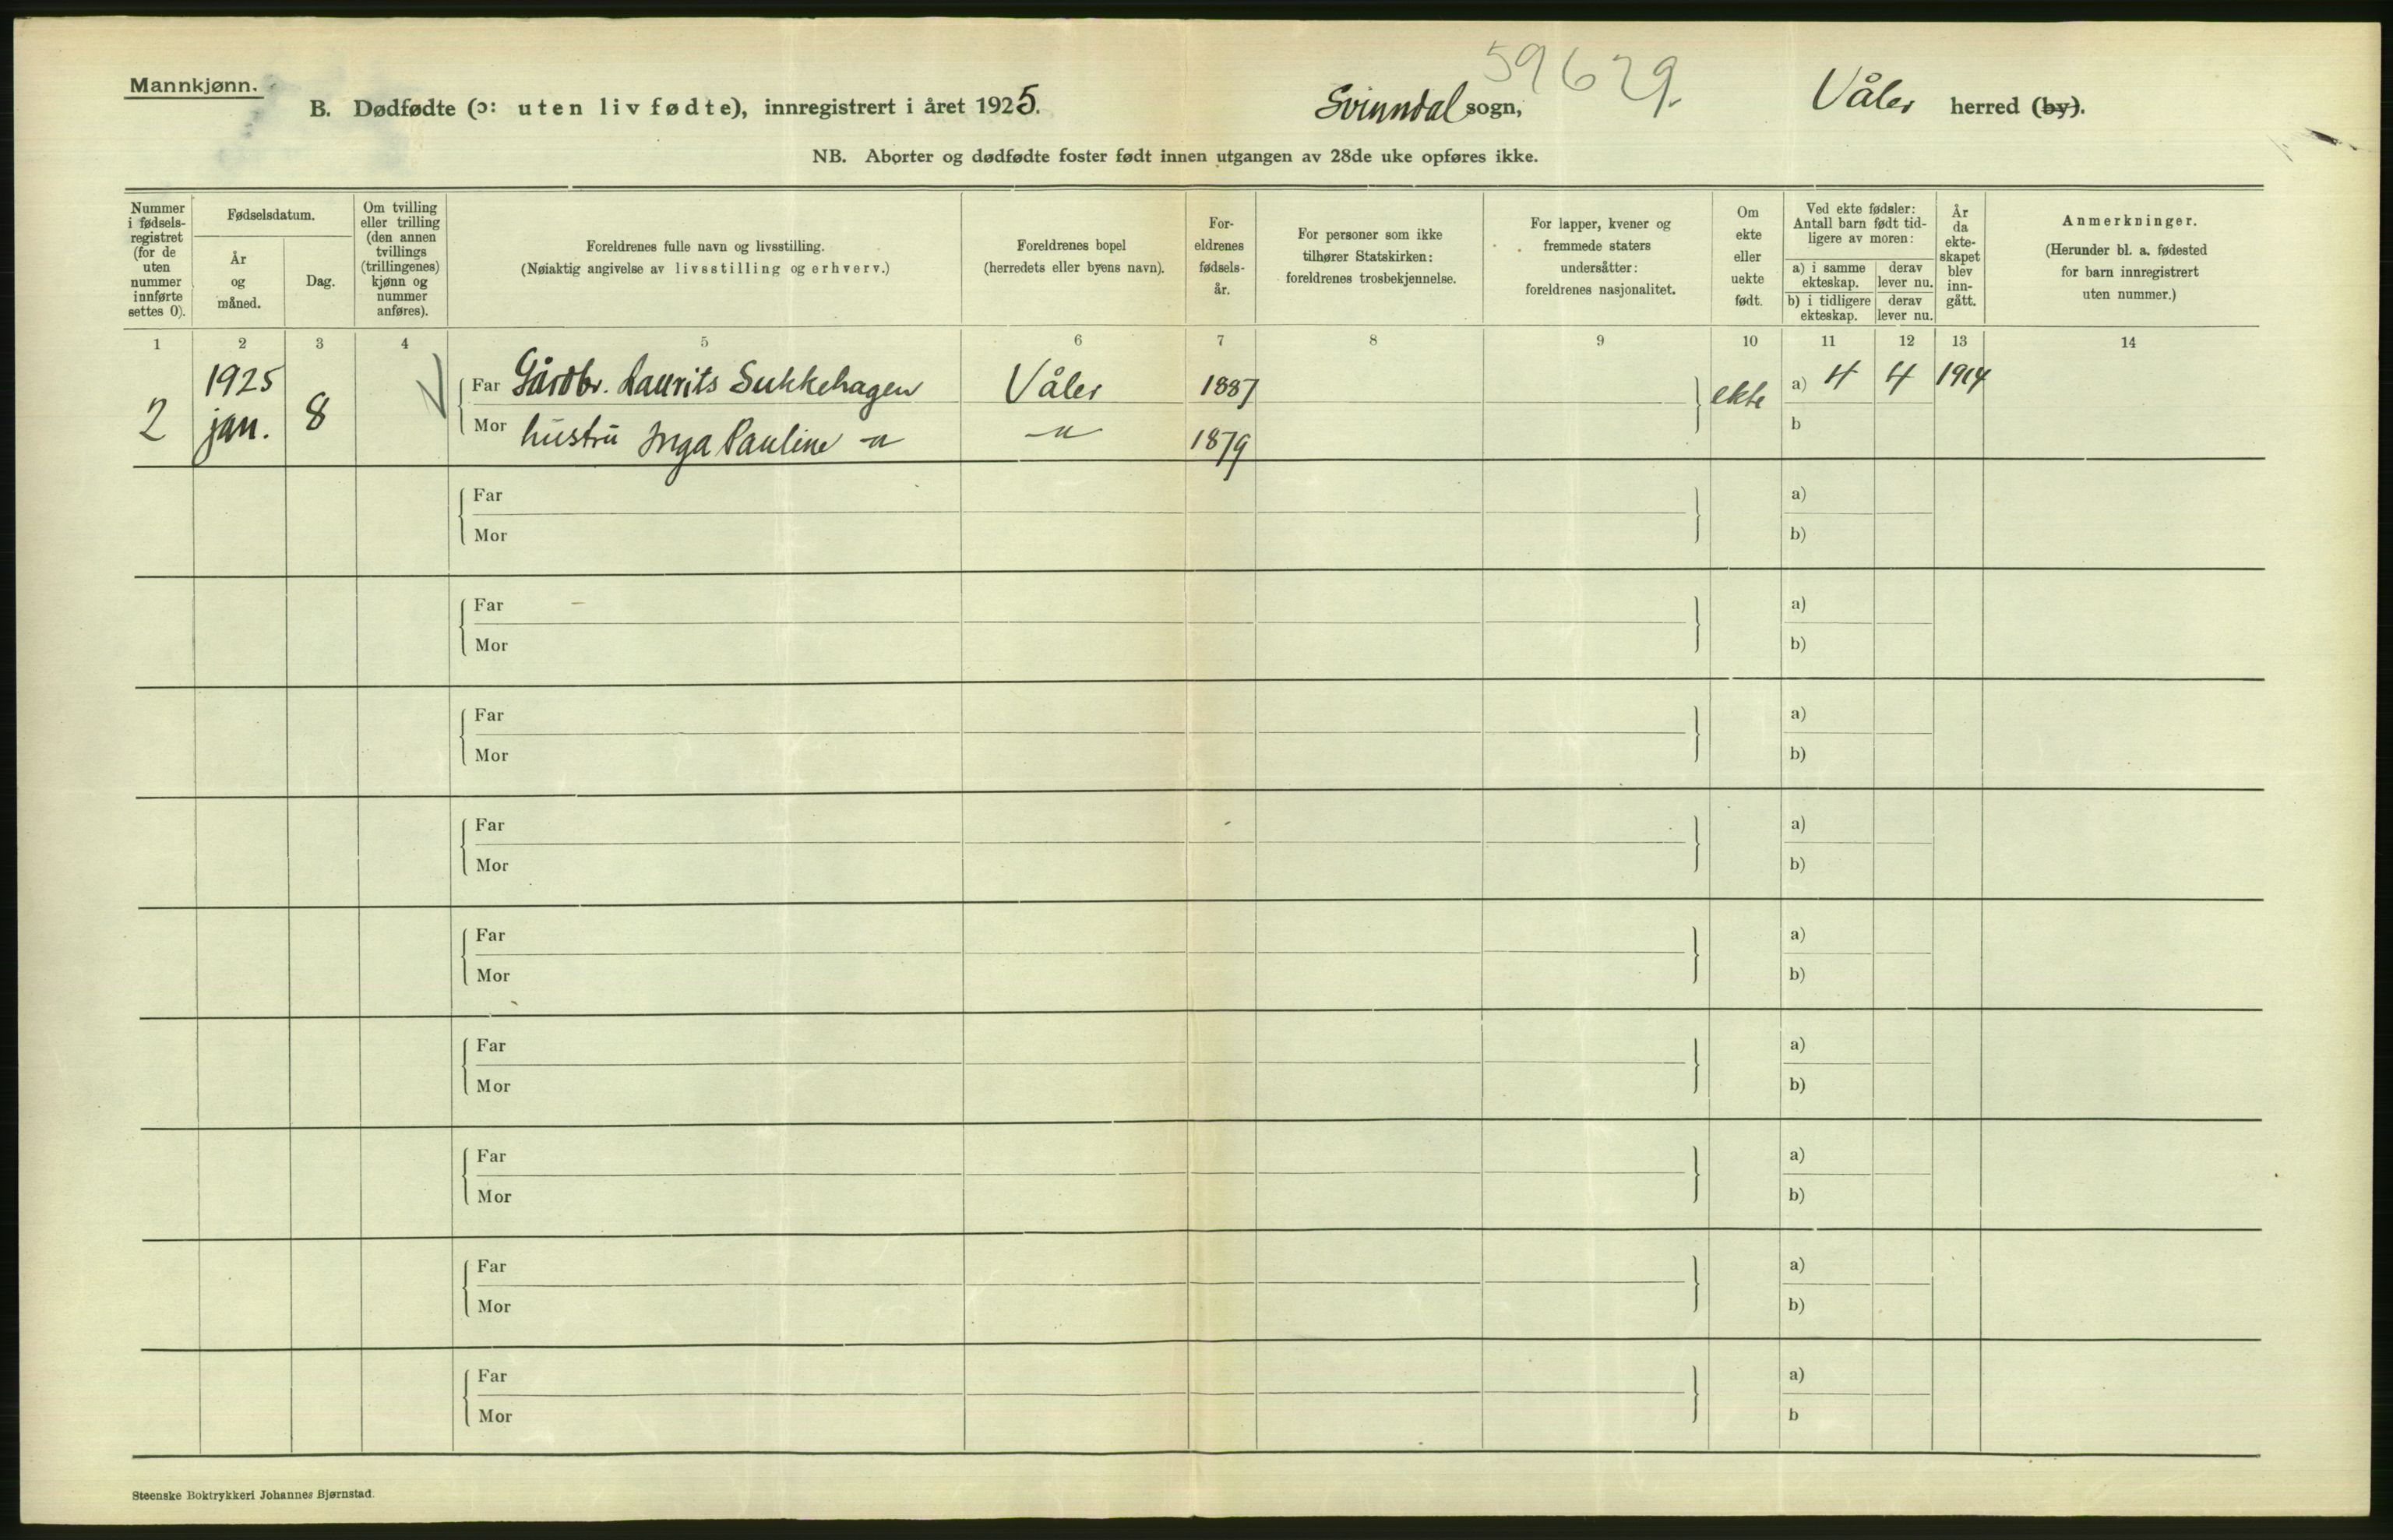 59629.
Mannkjønn.
B. Dødfødte (ɔ: uten liv fødte), innregistrert i året 1925. Svinndal sogn, Våler herred (by).
NB. Aborter og dødfødte foster født innen utgangen av 28de uke opføres ikke.
Nummer i fødsels-registret (for de uten nummer innførte settes 0).
Fødselsdatum.
År og måned.
Dag.
Om tvilling eller trilling (den annen tvillings (trillingenes) kjønn og nummer anføres).
Foreldrenes fulle navn og livsstilling.
(Nøiaktig angivelse av livsstilling og erhverv.)
Foreldrenes bopel
(herredets eller byens navn).
For-eldrenes fødsels-år.
For personer som ikke tilhører Statskirken: foreldrenes trosbekjennelse.
For lapper, kvener og fremmede staters undersåtter: foreldrenes nasjonalitet.
Om ekte eller uekte født.
Ved ekte fødsler: Antall barn født tid-ligere av moren:
a) i samme ekteskap. derav lever nu.
b) i tidligere ekteskap. derav lever nu.
År da ekte-skapet blev inn-gått.
Anmerkninger.
(Herunder bl. a. fødested for barn innregistrert uten nummer.)
1 2 3 4 5 6 7 8 9 10 11 12 13 14
1925 Far Gårdbr. Laurits Sukkehagen Våler 1887 ekte a) 4 4 1914
2 jan. 8 Mor hustru Inga Pauline -"- -"- 1879 b
Far a)
Mor b)
Far a)
Mor b)
Far a)
Mor b)
Far a)
Mor b)
Far a)
Mor b)
Far a)
Mor b)
Far a)
Mor b)
Far a)
Mor b)
Far a)
Mor b
Steenske Boktrykkeri Johannes Bjørnstad.